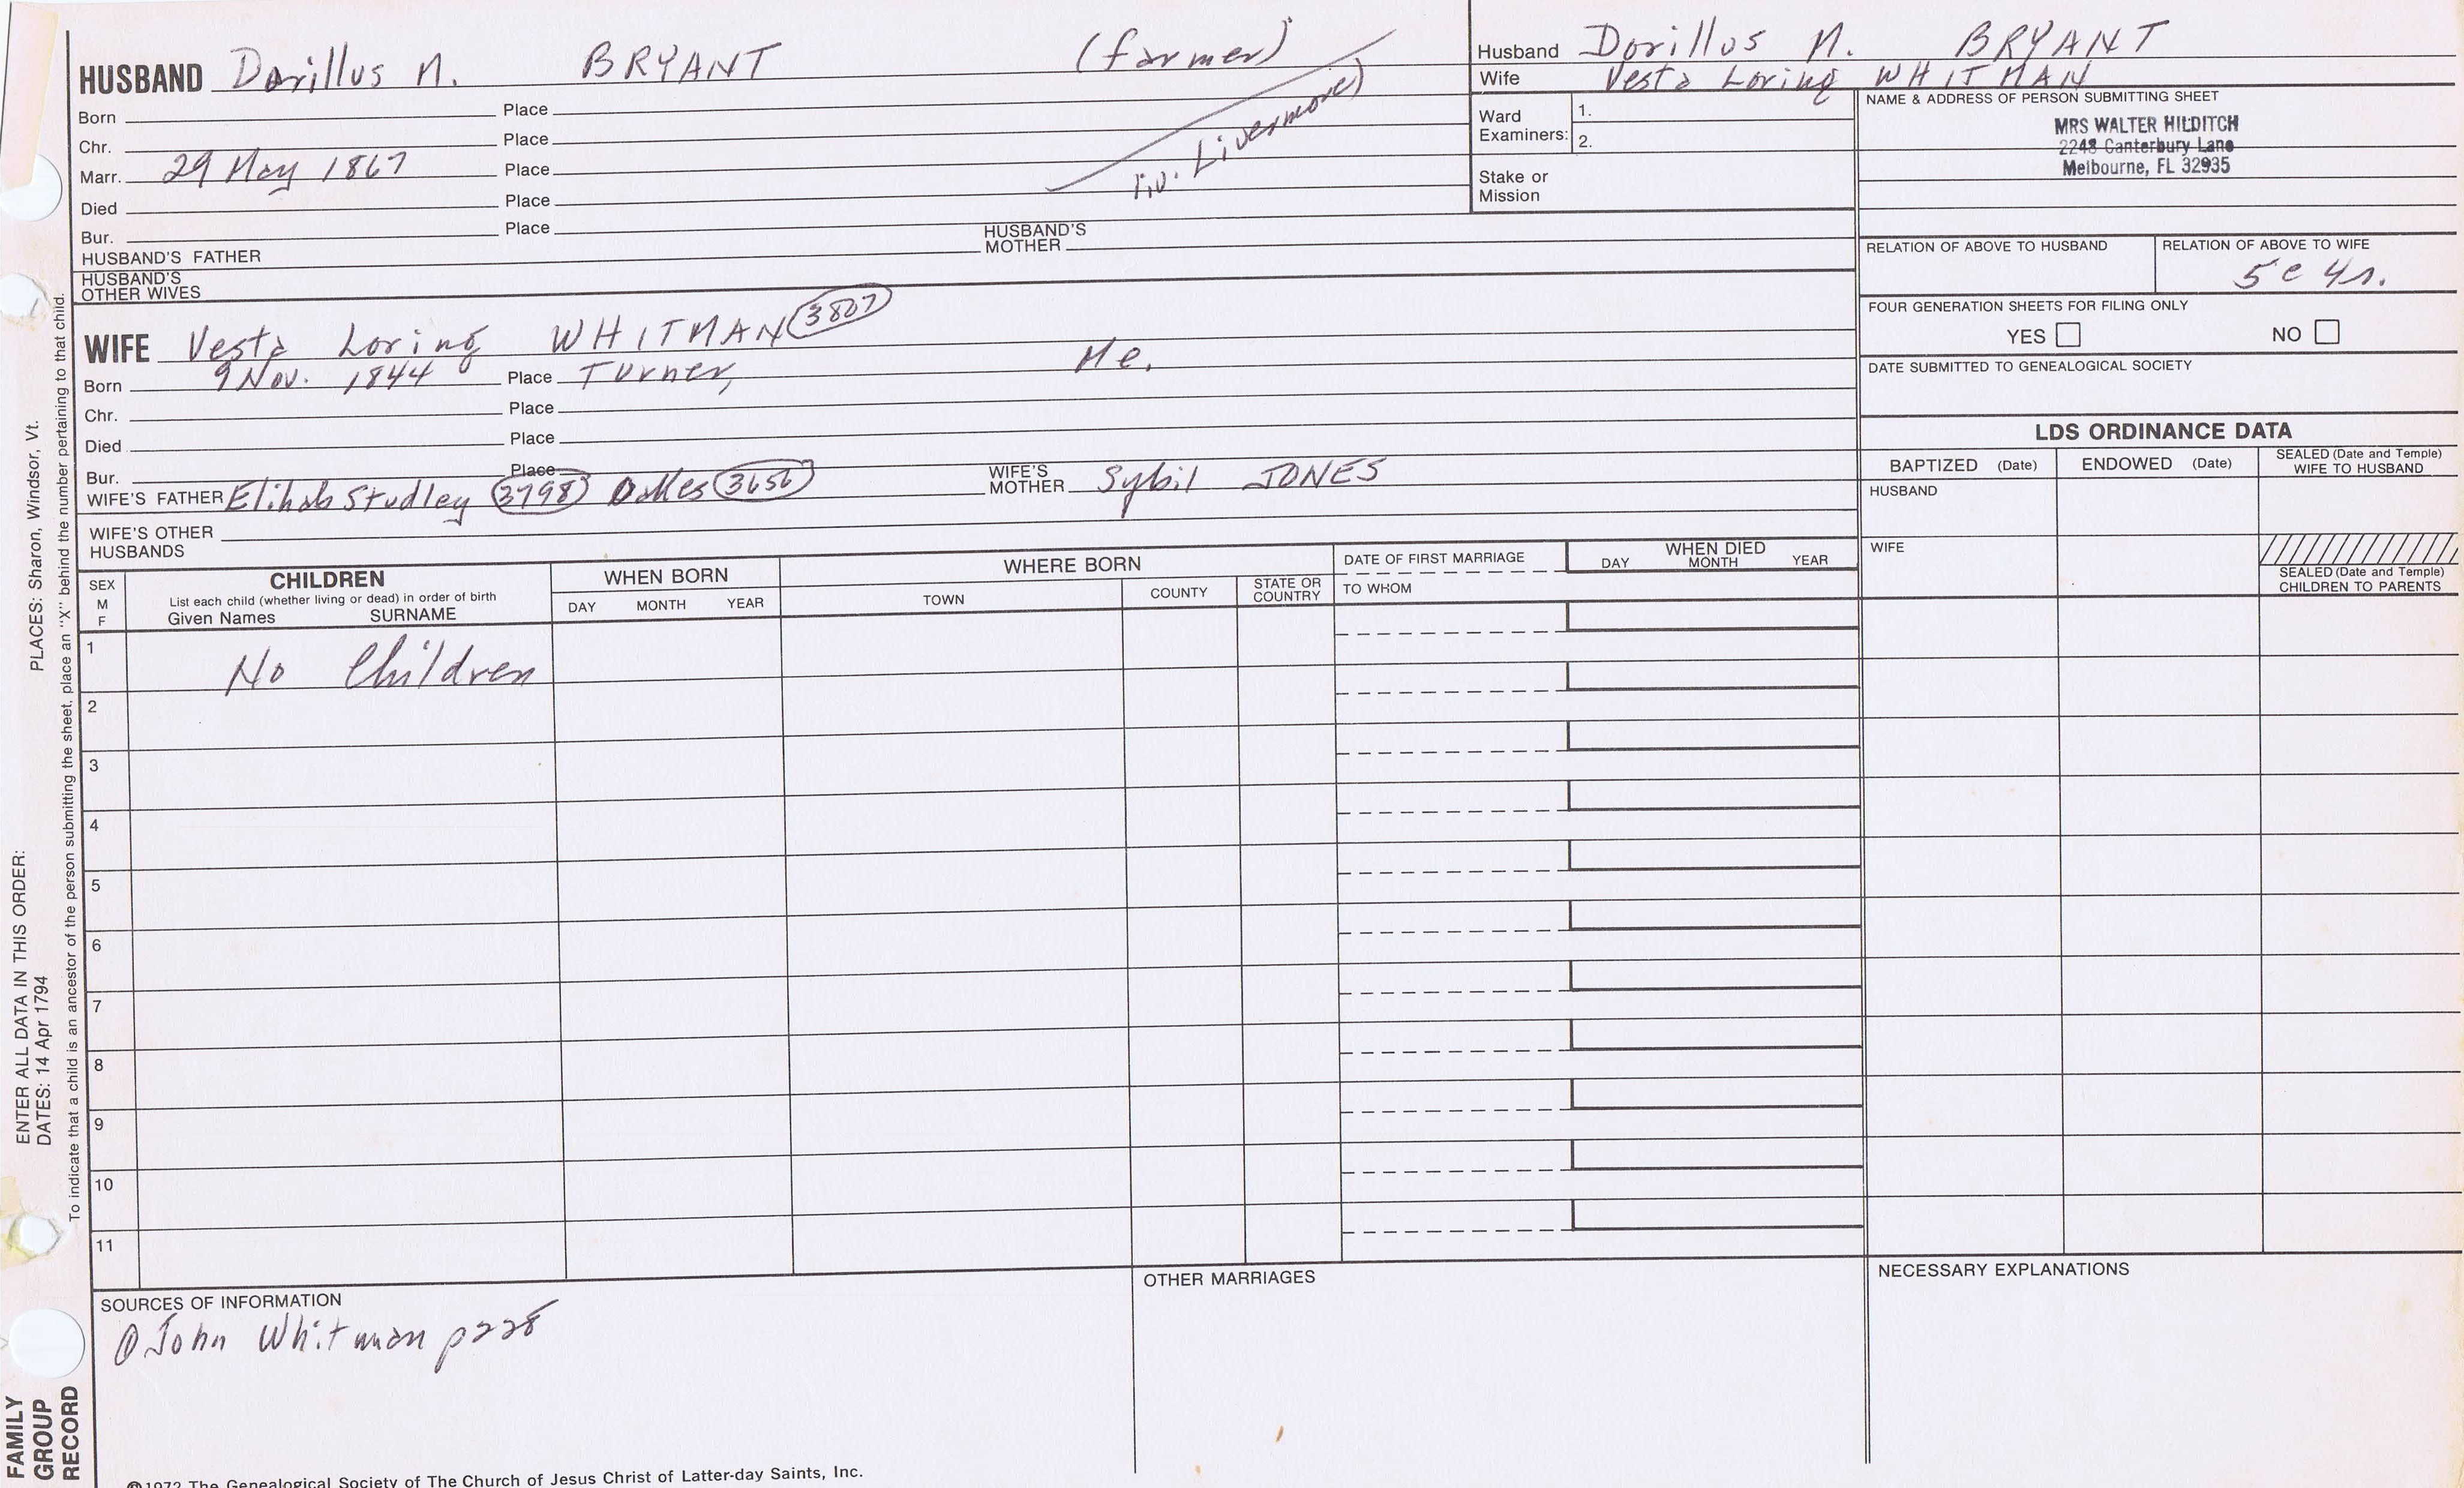 HUSBAND Dorillus M. BRYANT (farmer)
Born Place
Chr. Place
Marr. 29 May 1867 Place
liv. Livermore)
Died Place
Bur. Place
HUSBAND'S FATHER HUSBAND'S MOTHER
HUSBAND'S OTHER WIVES
WIFE Vesta Loring WHITMAN (3807)
Born 9 Nov. 1844 Place Turner, Me.
Chr. Place
Died Place
Bur. Place
WIFE'S FATHER Studley (3798) (3656) WIFE'S MOTHER Sybil JONES
WIFE'S OTHER HUSBANDS
Husband Dorillus M. BRYANT
Wife Vesta Loring WHITMAN
Ward Examiners: 1.
2.
Stake or Mission
NAME & ADDRESS OF PERSON SUBMITTING SHEET
MRS WALTER HILDITCH
2248 Canterbury Lane
Melbourne, FL 32935
RELATION OF ABOVE TO HUSBAND RELATION OF ABOVE TO WIFE
5c 4r.
FOUR GENERATION SHEETS FOR FILING ONLY
YES NO
DATE SUBMITTED TO GENEALOGICAL SOCIETY
LDS ORDINANCE DATA
BAPTIZED (Date) ENDOWED (Date) SEALED (Date and Temple) WIFE TO HUSBAND
HUSBAND
WIFE
SEALED (Date and Temple) CHILDREN TO PARENTS
SEX M F
CHILDREN
List each child (whether living or dead) in order of birth
Given Names SURNAME
WHEN BORN
DAY MONTH YEAR
WHERE BORN
TOWN COUNTY STATE OR COUNTRY
DATE OF FIRST MARRIAGE
TO WHOM
WHEN DIED
DAY MONTH YEAR
1 No Children
2
3
4
5
6
7
8
9
10
11
SOURCES OF INFORMATION
① John Whitman p228
OTHER MARRIAGES
NECESSARY EXPLANATIONS
©1972 The Genealogical Society of The Church of Jesus Christ of Latter-day Saints, Inc.
ENTER ALL DATA IN THIS ORDER:
PLACES: Sharon, Windsor, Vt.
DATES: 14 Apr 1794
To indicate that a child is an ancestor of the person submitting the sheet, place an "X" behind the number pertaining to that child.
FAMILY
GROUP
RECORD